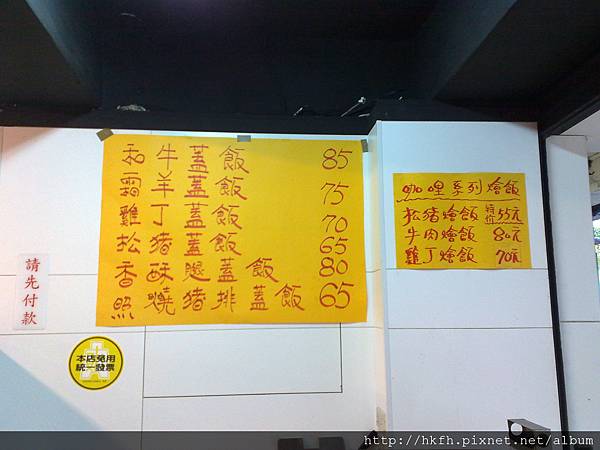 和牛蓋飯 85
霜羊蓋飯 75
雞丁蓋飯 70
松豬蓋飯 65
香酥腿蓋飯 80
照燒豬排蓋飯 65
咖哩系列燴飯
松豬燴飯 特價 55元
牛肉燴飯 80元
雞丁燴飯 70元
請先付款
本店免用
統一發票
http://hkfh.pixnet.net/album